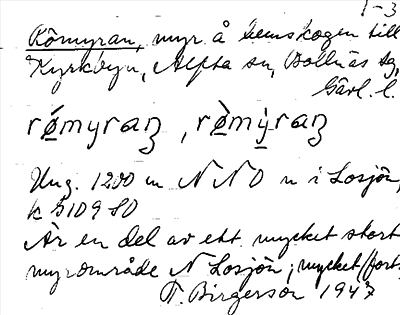 1-3
Römyran, myr å hemskogen till
Kyrkbyn, Alfta sn, Bollnäs tg,
Gävl. l.
Ung. 1200 m NNO n i Losjön,
k 5109 SO
Är en del av ett mycket stort
myrområde N Losjön; mycket /forts.
T. Birgerson 1947